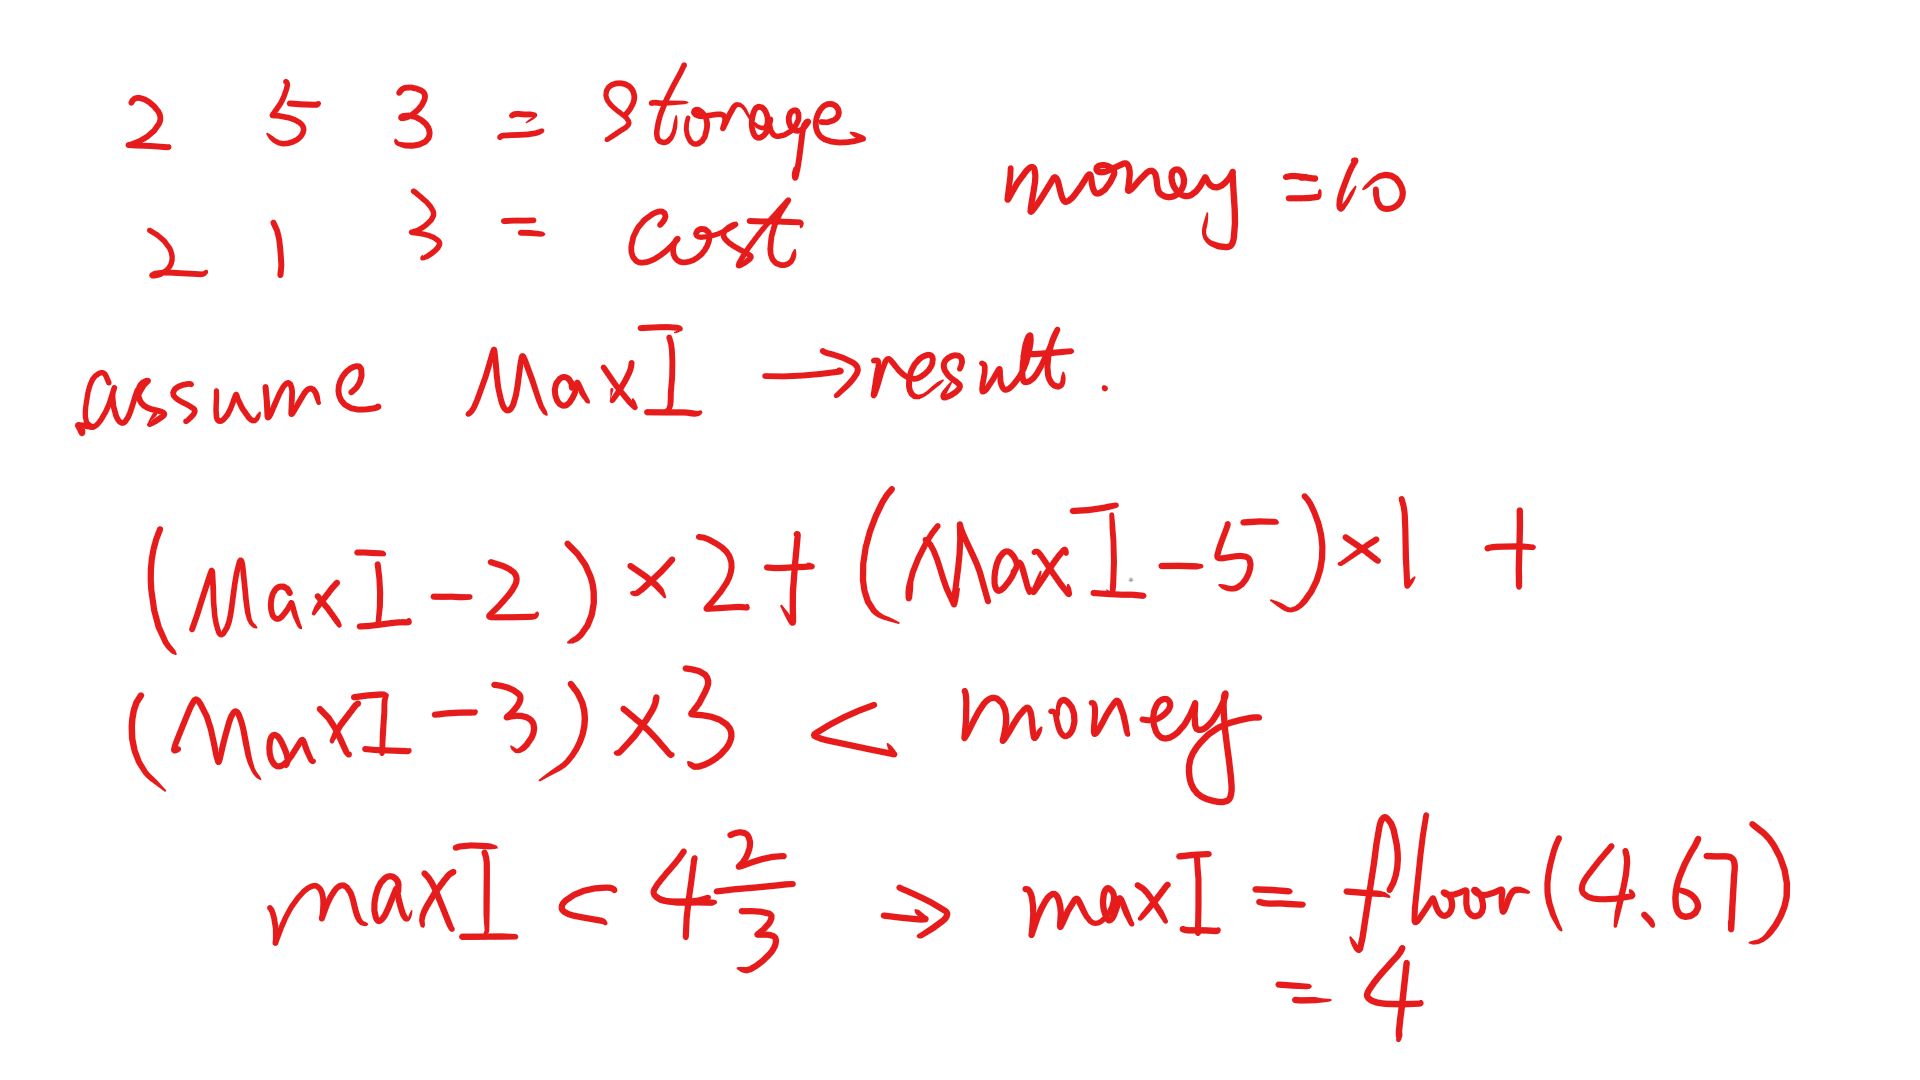 2 5 3 = storage
money = 10
2 1 3 = cost
assume MaxI → result.
(MaxI - 2) × 2 + (MaxI - 5) × 1 +
(MaxI - 3) × 3 < money
maxI < 4 2/3 → maxI = floor(4.67)
= 4